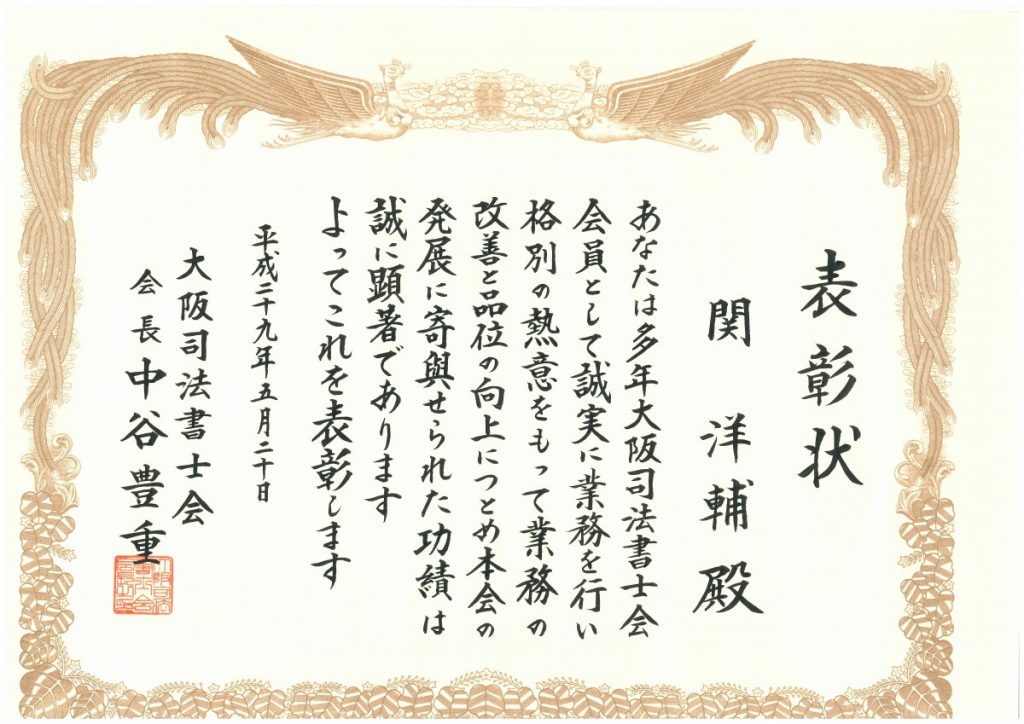 表彰状
関 洋輔 殿
あなたは多年大阪司法書士会
会員として誠実に業務を行い
格別の熱意をもって業務の
改善と品位の向上につとめ本会の
発展に寄與せられた功績は
誠に顕著であります
よってこれを表彰します
平成二十九年五月二十日
大阪司法書士会
会長 中谷豊重